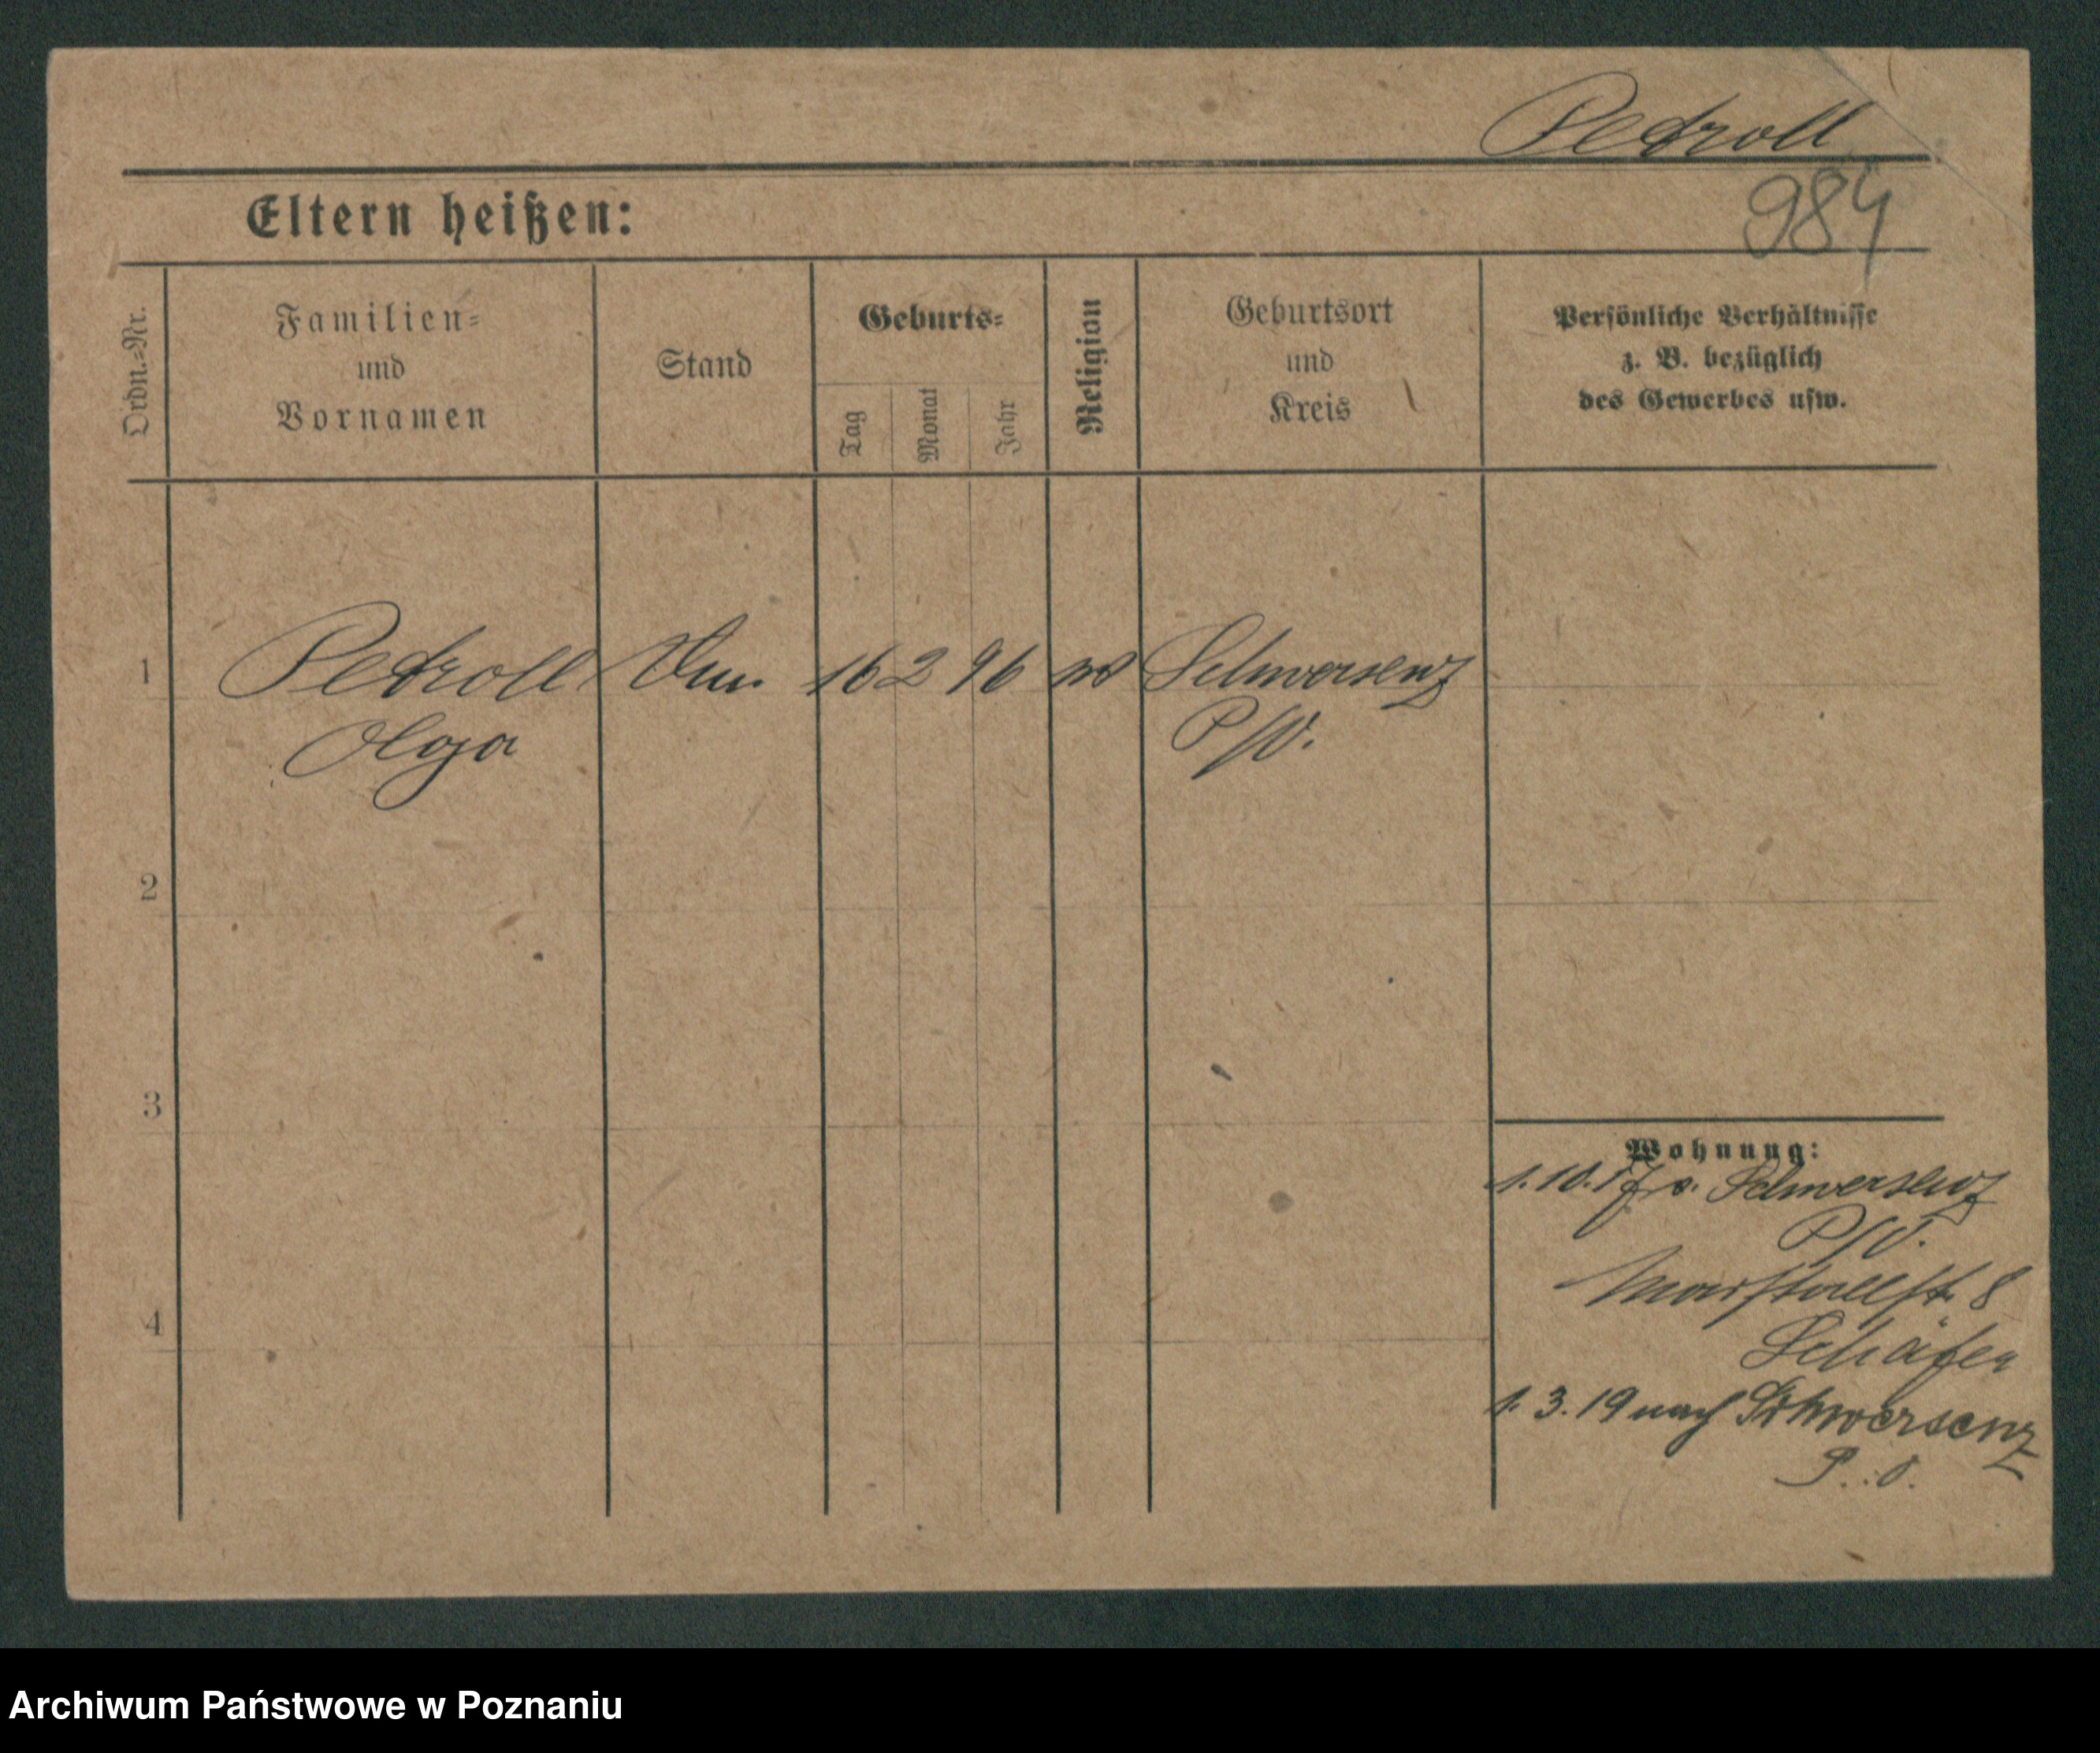 Pedroll
984
Eltern heißen:
Ordn.=Nr.
Familien=
und
Vornamen
Stand
Geburts=
Tag
Monat
Jahr
Religion
Geburtsort
und
Kreis
Persönliche Verhältnisse
z. B. bezüglich
des Gewerbes usw.
1 Pedroll 16 2 96 Schwersenz
Olga P/O.
2
3
4
Wohnung:
1.10.17 v. Schwersenz
P/O.
Marstallstr. 8
Schäfer
1. 3. 19 nach Schwersenz
P. O.
Archiwum Państwowe w Poznaniu